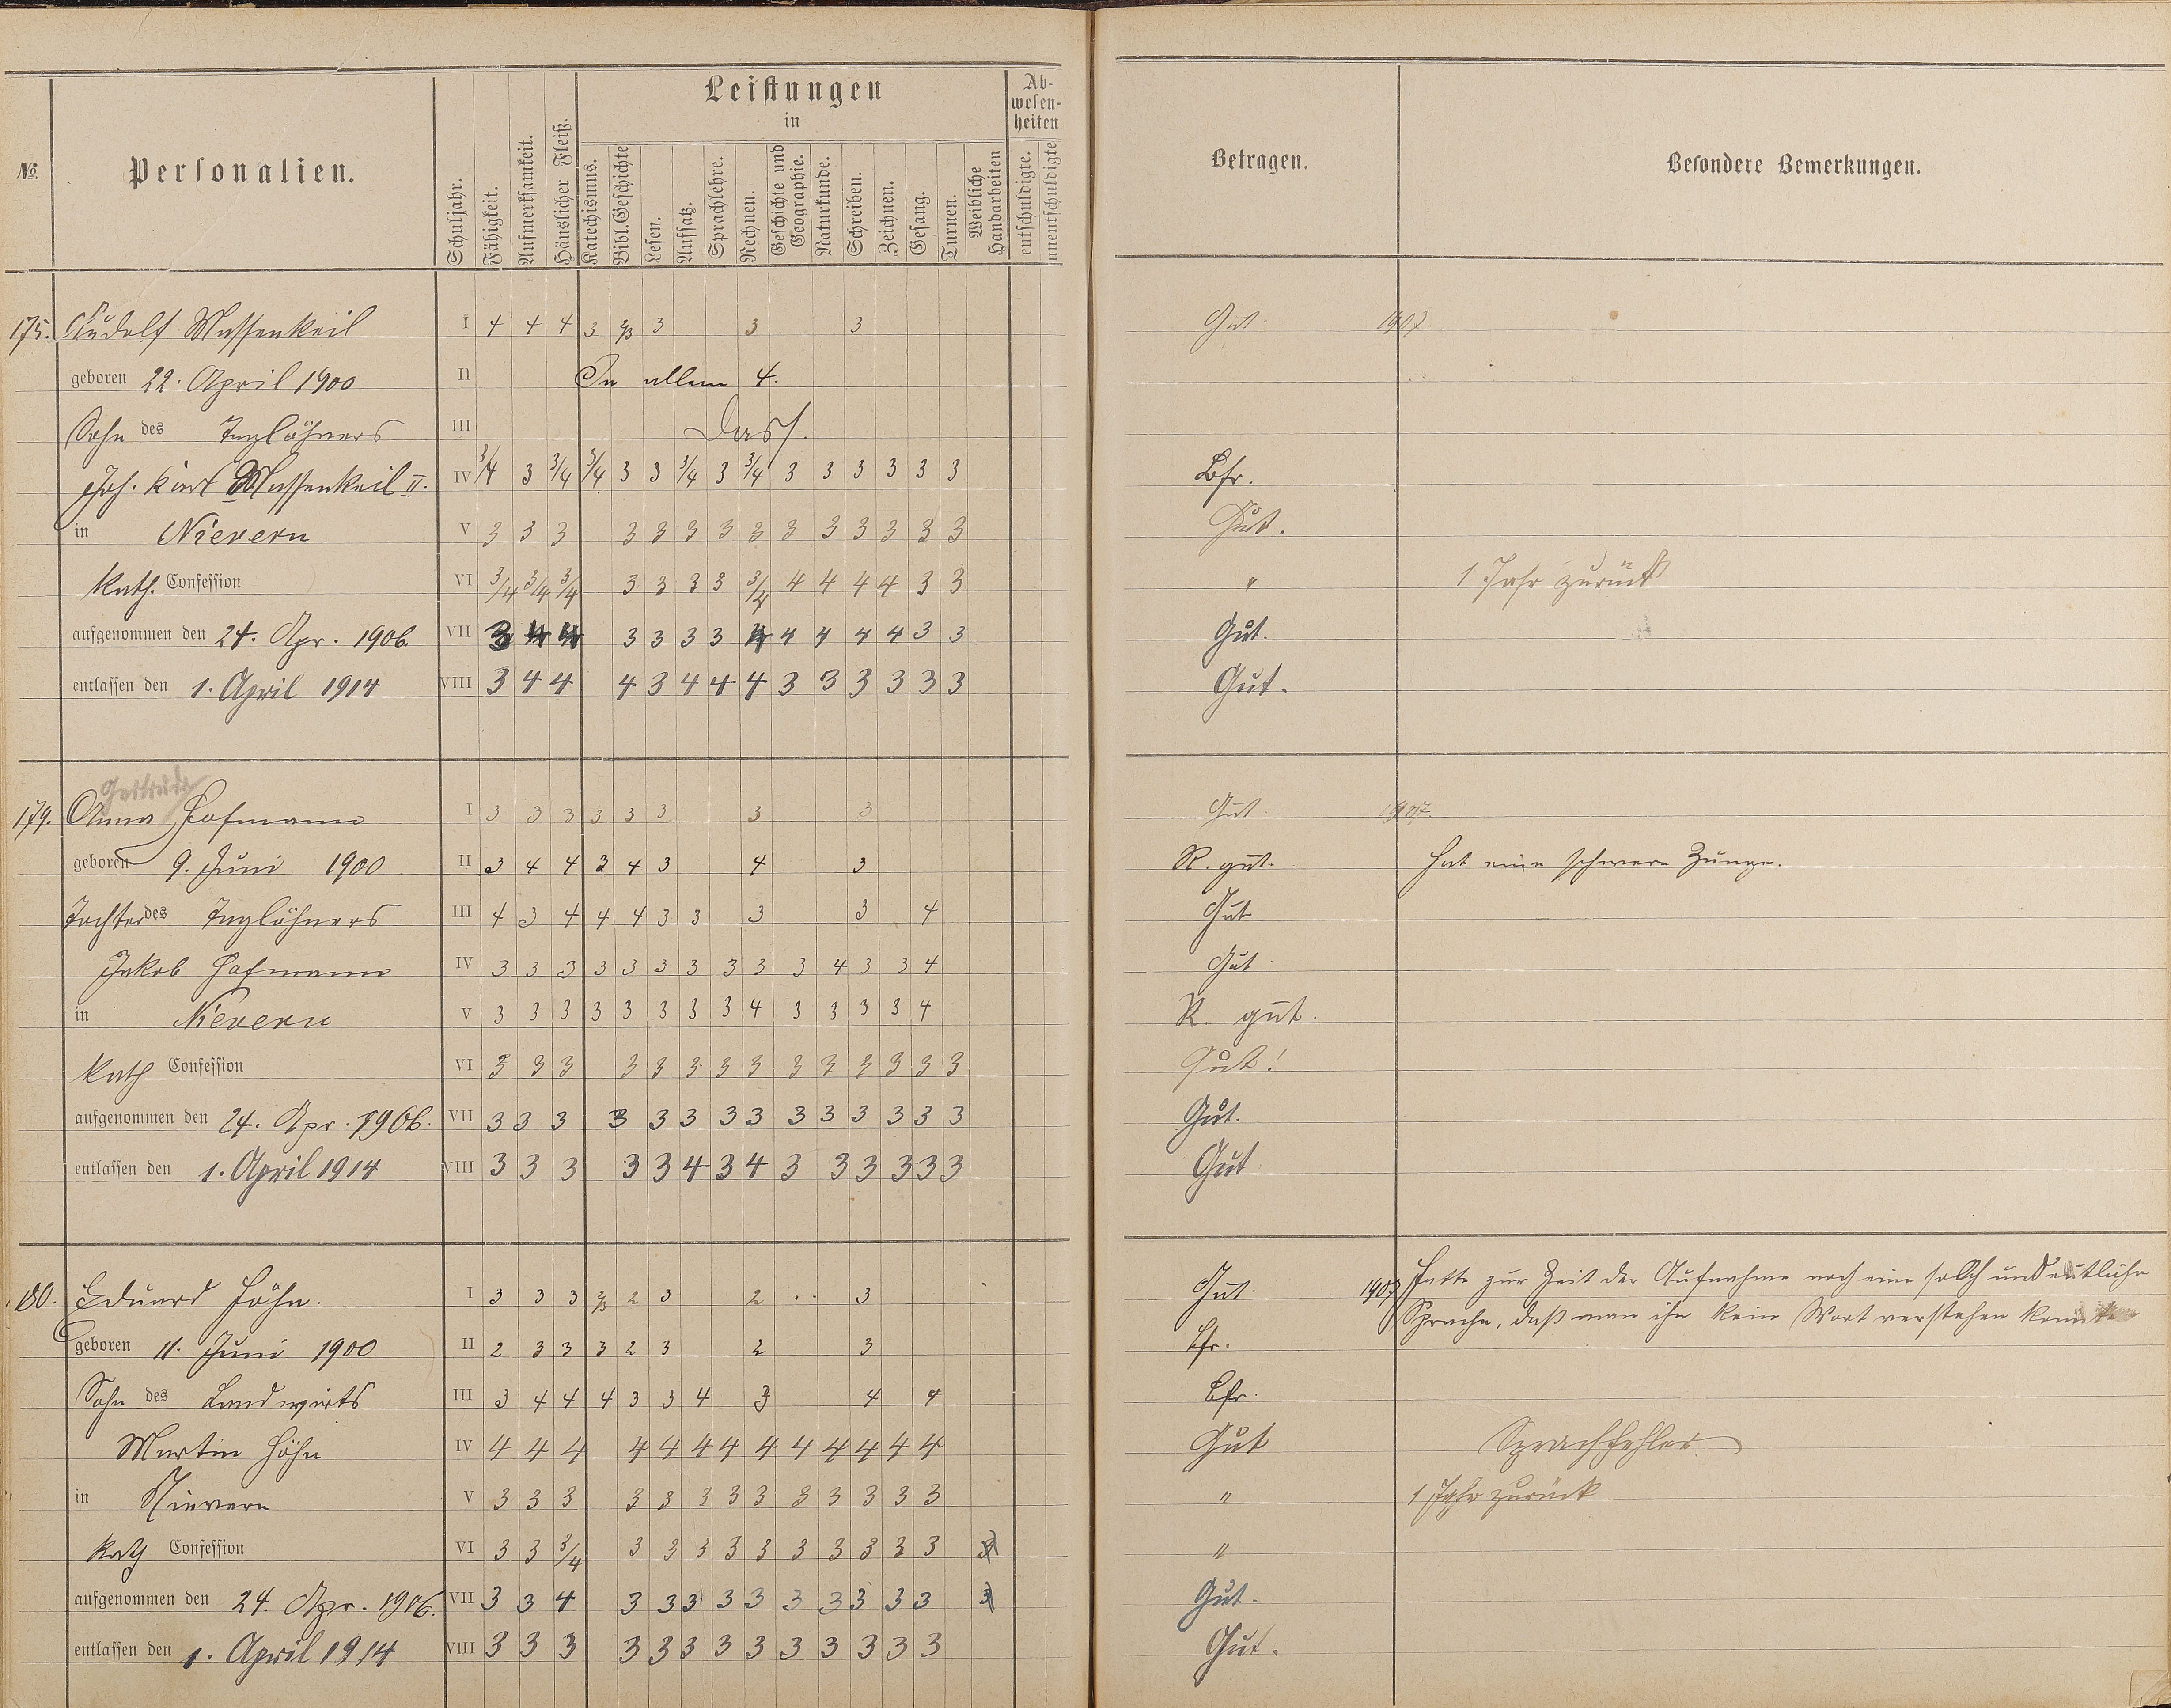 Leistungen
in
Ab-
wesen-
heiten
No. Personalien. Schuljahr. Fähigkeit. Aufmerksamkeit. Häuslicher Fleiß. Katechismus. Bibl. Geschichte Lesen. Aufsatz. Sprachlehre. Rechnen. Geschichte und Geographie. Naturkunde. Schreiben. Zeichnen. Gesang. Turnen. Weibliche Handarbeiten entschuldigte. unentschuldigte Betragen. Besondere Bemerkungen.
175. Rudolf Massenkeil I 4 4 4 3 2/3 3 3 3 Gut. 1907.
geboren 22. April 1900 II In allem 4.
Sohn des Taglöhners III Dass.
Joh. Karl Massenkeil II. IV 3/4 3 3/4 3/4 3 3 3/4 3 3/4 3 3 3 3 3 3 Bfr.
in Nievern V 3 3 3 3 3 3 3 3 3 3 3 3 3 3 Gut.
Kath. Confession VI 3/4 3/4 3/4 3 3 3 3 3/4 4 4 4 4 3 3 " 1 Jahr zurück
aufgenommen den 24. Apr. 1906. VII 3 4 4 3 3 3 3 4 4 4 4 4 3 3 Gut.
entlassen den 1. April 1914 VIII 3 4 4 4 3 4 4 4 3 3 3 3 3 3 Gut.
Gertrude
179. Anna Hofmann I 3 3 3 3 3 3 3 3 Gut. 1907.
geboren 9. Juni 1900 II 3 4 4 3 4 3 4 3 R. gut. Hat eine schwere Zunge.
Tochter des Taglöhners III 4 3 4 4 4 3 3 3 3 4 Gut
Jakob Hofmann IV 3 3 3 3 3 3 3 3 3 3 4 3 3 4 Gut
in Nievern V 3 3 3 3 3 3 3 3 4 3 3 3 3 4 R. gut.
Kath Confession VI 3 3 3 3 3 3 3 3 3 3 3 3 3 3 Gut!
aufgenommen den 24. Apr. 1906. VII 3 3 3 3 3 3 3 3 3 3 3 3 3 3 Gut.
entlassen den 1. April 1914 VIII 3 3 3 3 3 4 3 4 3 3 3 3 3 3 Gut
180. Eduard Höhn. I 3 3 3 2/3 2 3 2 3 Gut. 1907 Hatte zur Zeit der Aufnahme noch eine solch undeutliche
Sprache, daß man ihn kein Wort verstehen konnte
geboren 11. Juni 1900 II 2 3 3 3 2 3 2 3 Bfr.
Sohn des Landwirts III 3 4 4 4 3 3 4 3 4 4 Bfr.
Martin Höhn IV 4 4 4 4 4 4 4 4 4 4 4 4 4 Gut Sprachfehler
in Nievern V 3 3 3 3 3 3 3 3 3 3 3 3 3 " 1 Jahr zurück
Kath Confession VI 3 3 3/4 3 3 3 3 3 3 3 3 3 3 3 "
aufgenommen den 24. Apr. 1906. VII 3 3 4 3 3 3 3 3 3 3 3 3 3 3 Gut.
entlassen den 1. April 1914 VIII 3 3 3 3 3 3 3 3 3 3 3 3 3 Gut.